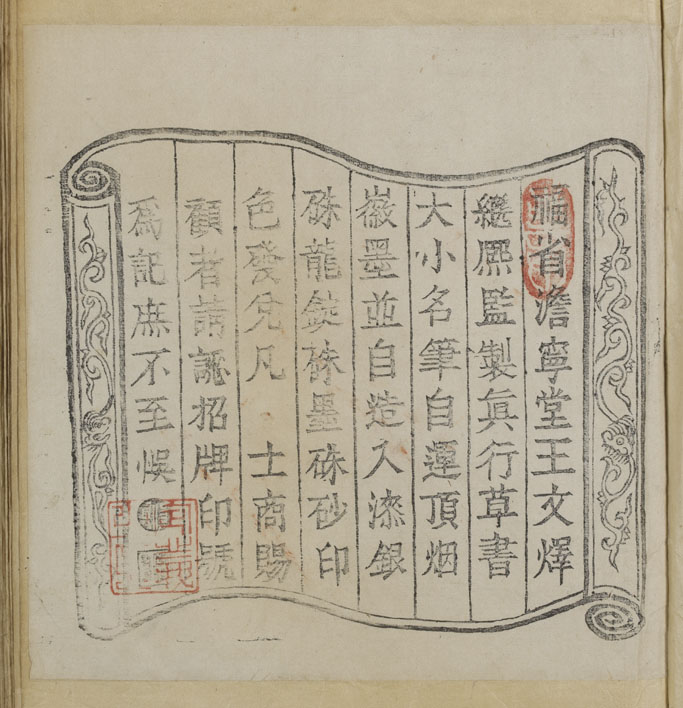 福省澹寧堂王文煇
繼熈監製眞行草書
大小名筆自運頂烟
嶶墨並自造入漆銀
硃龍錠硃墨硃砂印
色發兌凡　士商賜
顧者請認招牌印號
爲記庶不至悞